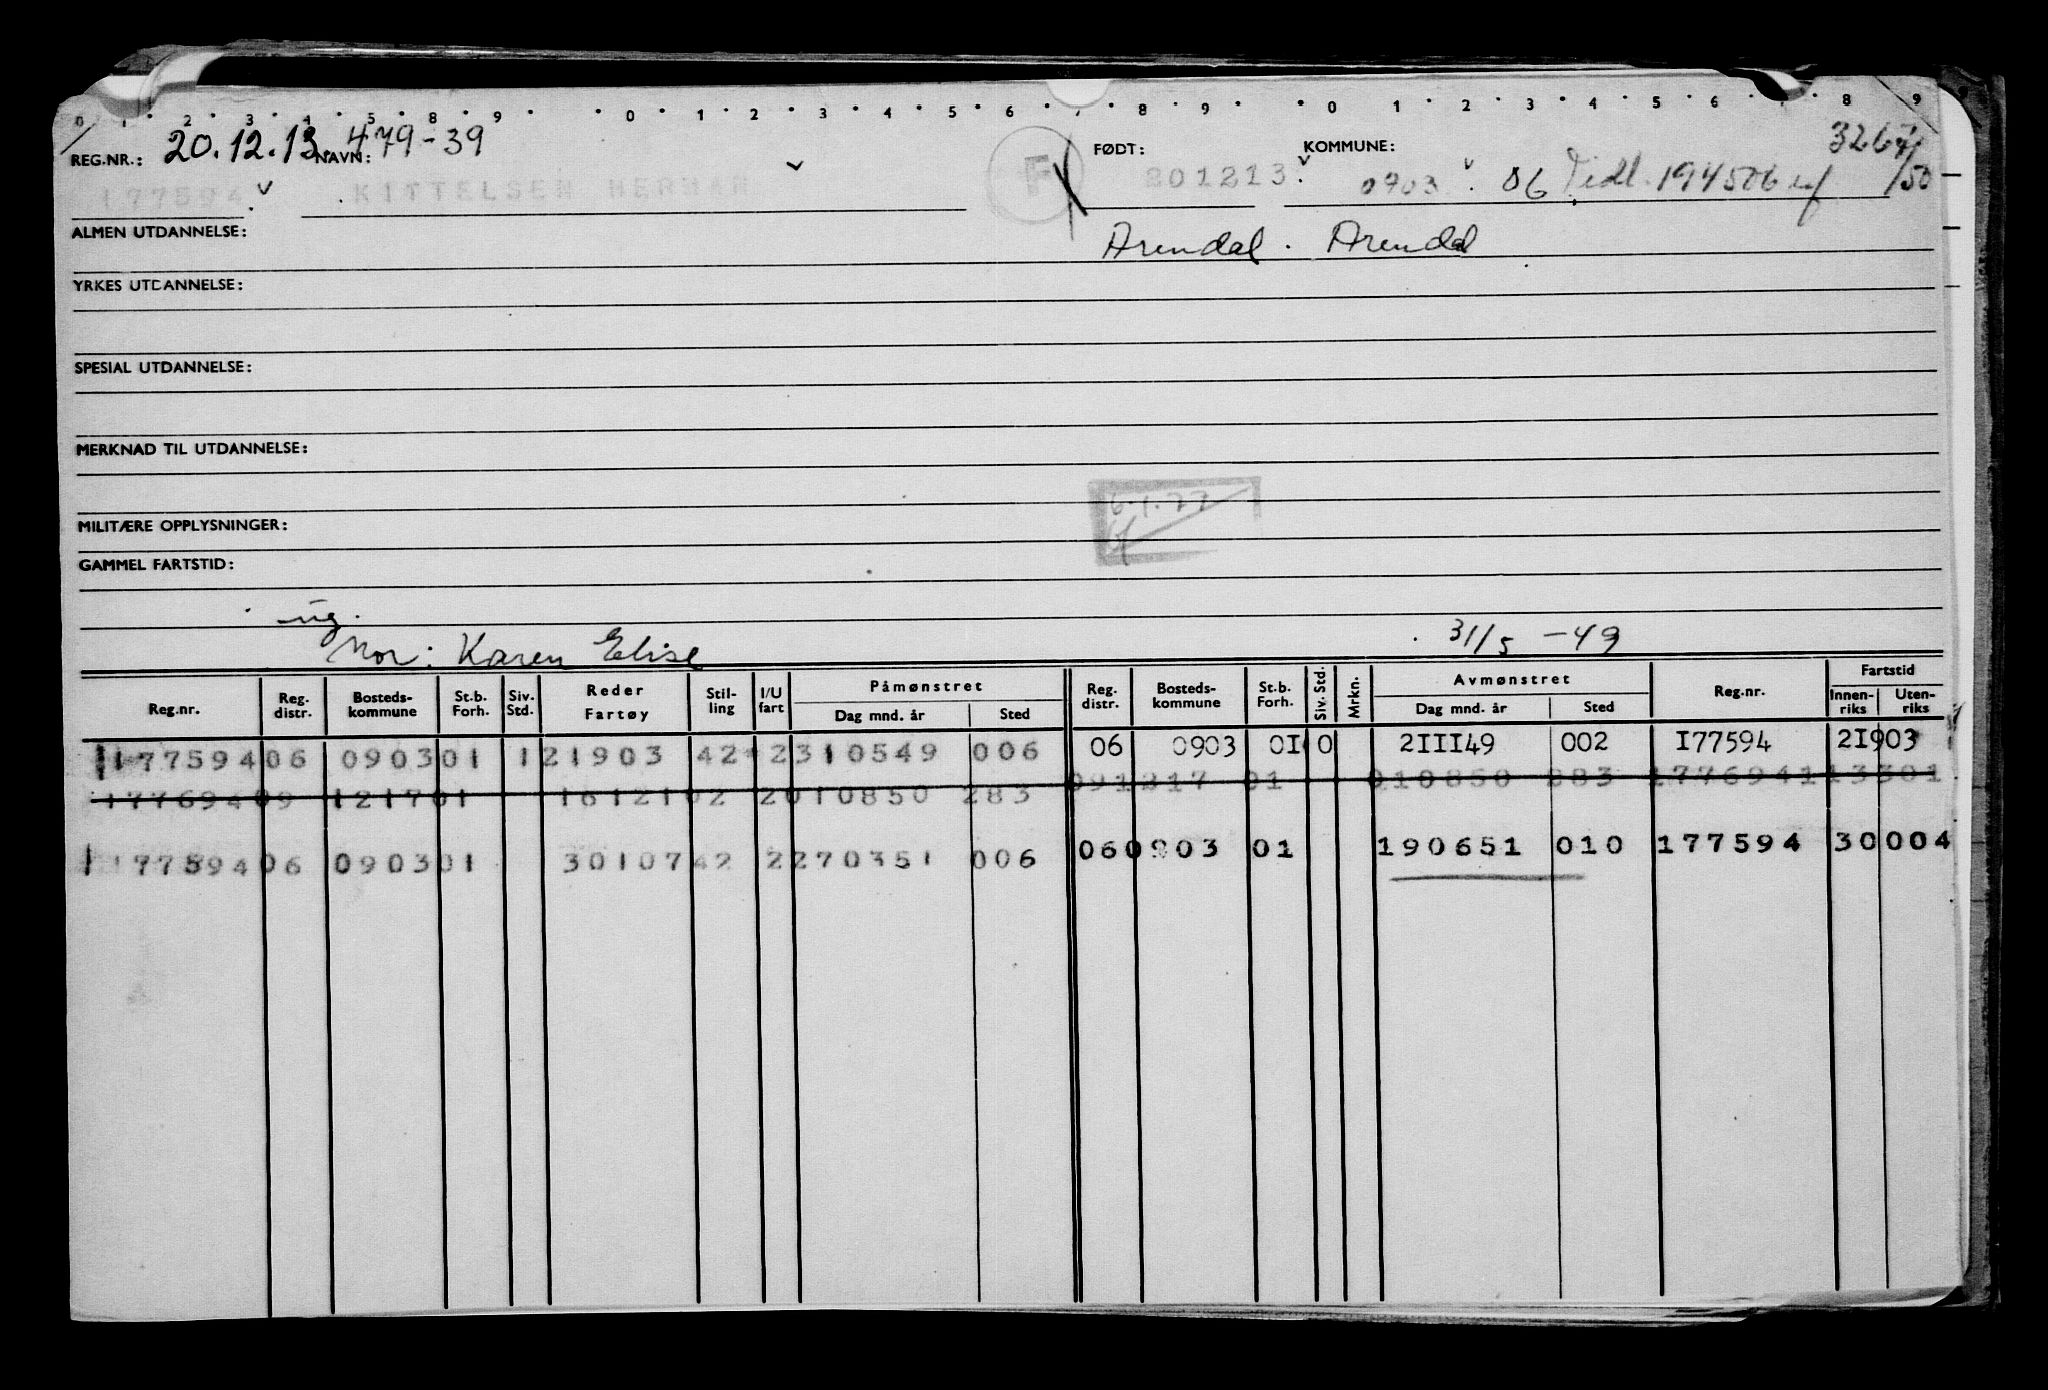 0 1 2 3 4 5 8 9 0 1 2 3 4 5 6 7 8 9 0 1 2 3 4 5 6 7 8 9
REG.NR.: 20.12.13. NAVN: 479-39 F FØDT: KOMMUNE: 3267/50
177594 KITTELSEN HERMAN 201213 0903 06 Tidl. 194506
ALMEN UTDANNELSE: Arendal. Arendal
YRKES UTDANNELSE:
SPESIAL UTDANNELSE:
MERKNAD TIL UTDANNELSE:
6.1.77
MILITÆRE OPPLYSNINGER:
GAMMEL FARTSTID:
ug.
Mor: Karen Elise 31/5 -49
Reg.nr. Reg. distr. Bosteds-kommune St.b. Forh. Siv. Std. Reder Fartøy Stil-ling I/U fart Påmønstret Dag mnd. år Sted Reg. distr. Bosteds-kommune St.b. Forh. Siv. Std. Mrkn. Avmønstret Dag mnd. år Sted Reg.nr. Fartstid Innen-riks Uten-riks
177594 06 0903 01 1 21903 42 2 310549 006 06 0903 0I 0 2III49 002 I77594 2I903
177694 09 1217 01 16121 02 2 010850 283 09 1217 01 010850 283 177694 113301
177594 06 0903 01 30107 42 2 270351 006 06 0903 01 190651 010 177594 30004